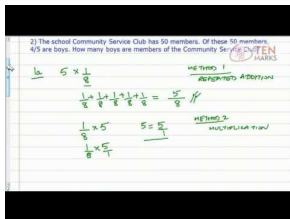 2) The school Community Service Club has 50 members. Of these 50 members,
4/5 are boys. How many boys are members of the Community Service Club?
TEN
MARKS
1a 5 × 1/8 METHOD 1
REPEATED ADDITION
1/8 + 1/8 + 1/8 + 1/8 + 1/8 = 5/8
METHOD 2
1/8 × 5 5 = 5/1 MULTIPLICATION
1/8 × 5/1